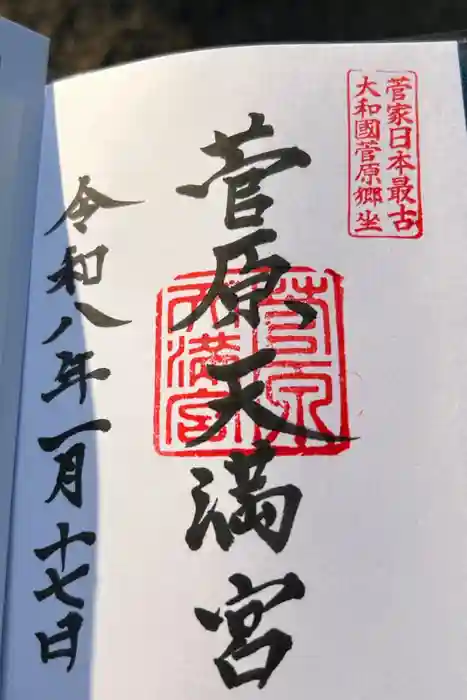 菅家日本最古
大和國菅原郷坐
菅原天満宮
菅原
天満宮
令和八年一月十七日